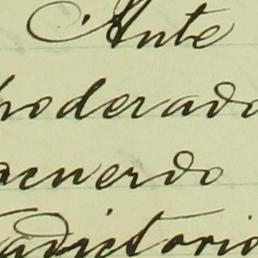 Ante
poderado
acuerdo
adictorio